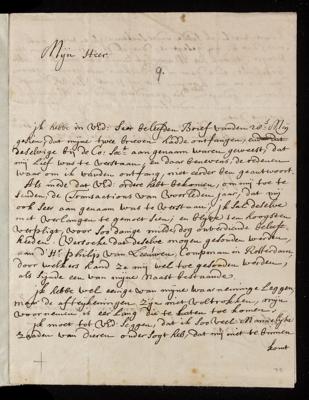 Mijn Heer
9.
ijk hebbe in UEd: seer beleefden Brief vanden 20:e Meij
gesien, dat mijne twee brieven hadde ontfangen, ende dat
deselvige bij de Co: Soc:t aengenaam waren geweest, dat
mij lief was te verstaen, en daar benevens, de redenen
waar om ik vanden ontfang, niet eerder ben geantwoort.
Als mede dat UEd: ordere heeft bekomen, om mij toe te
senden, de Transactions van voorleden jaar, dat mij
ook seer aengenaam was te verstaen; ik sal deselve
met verlangen te gemoet sien; en blijve ten hoogsten
verpligt, voor soodanige milde, dog onverdiende beleeft-
heden. Versoeke dat deselve mogen gesonden werden,
aan d'Hr. Philips van Leeuwen, Coopman in Rotterdam
door welkers hand ze mij wel toe gesonden werden,
als sijnde een van mijne Naest bestaande.
ijk hebbe wel eenige van mijne waarneminge leggen,
maar de afteijkeningen zijn niet voltrokken, mijn
voornemen is eer lang die te laten toe komen.
ijk moet tot UEd: seggen, dat ik soo veel Mannelijke
zaden van dieren ondersogt heb, dat mij niet te binnen
komt